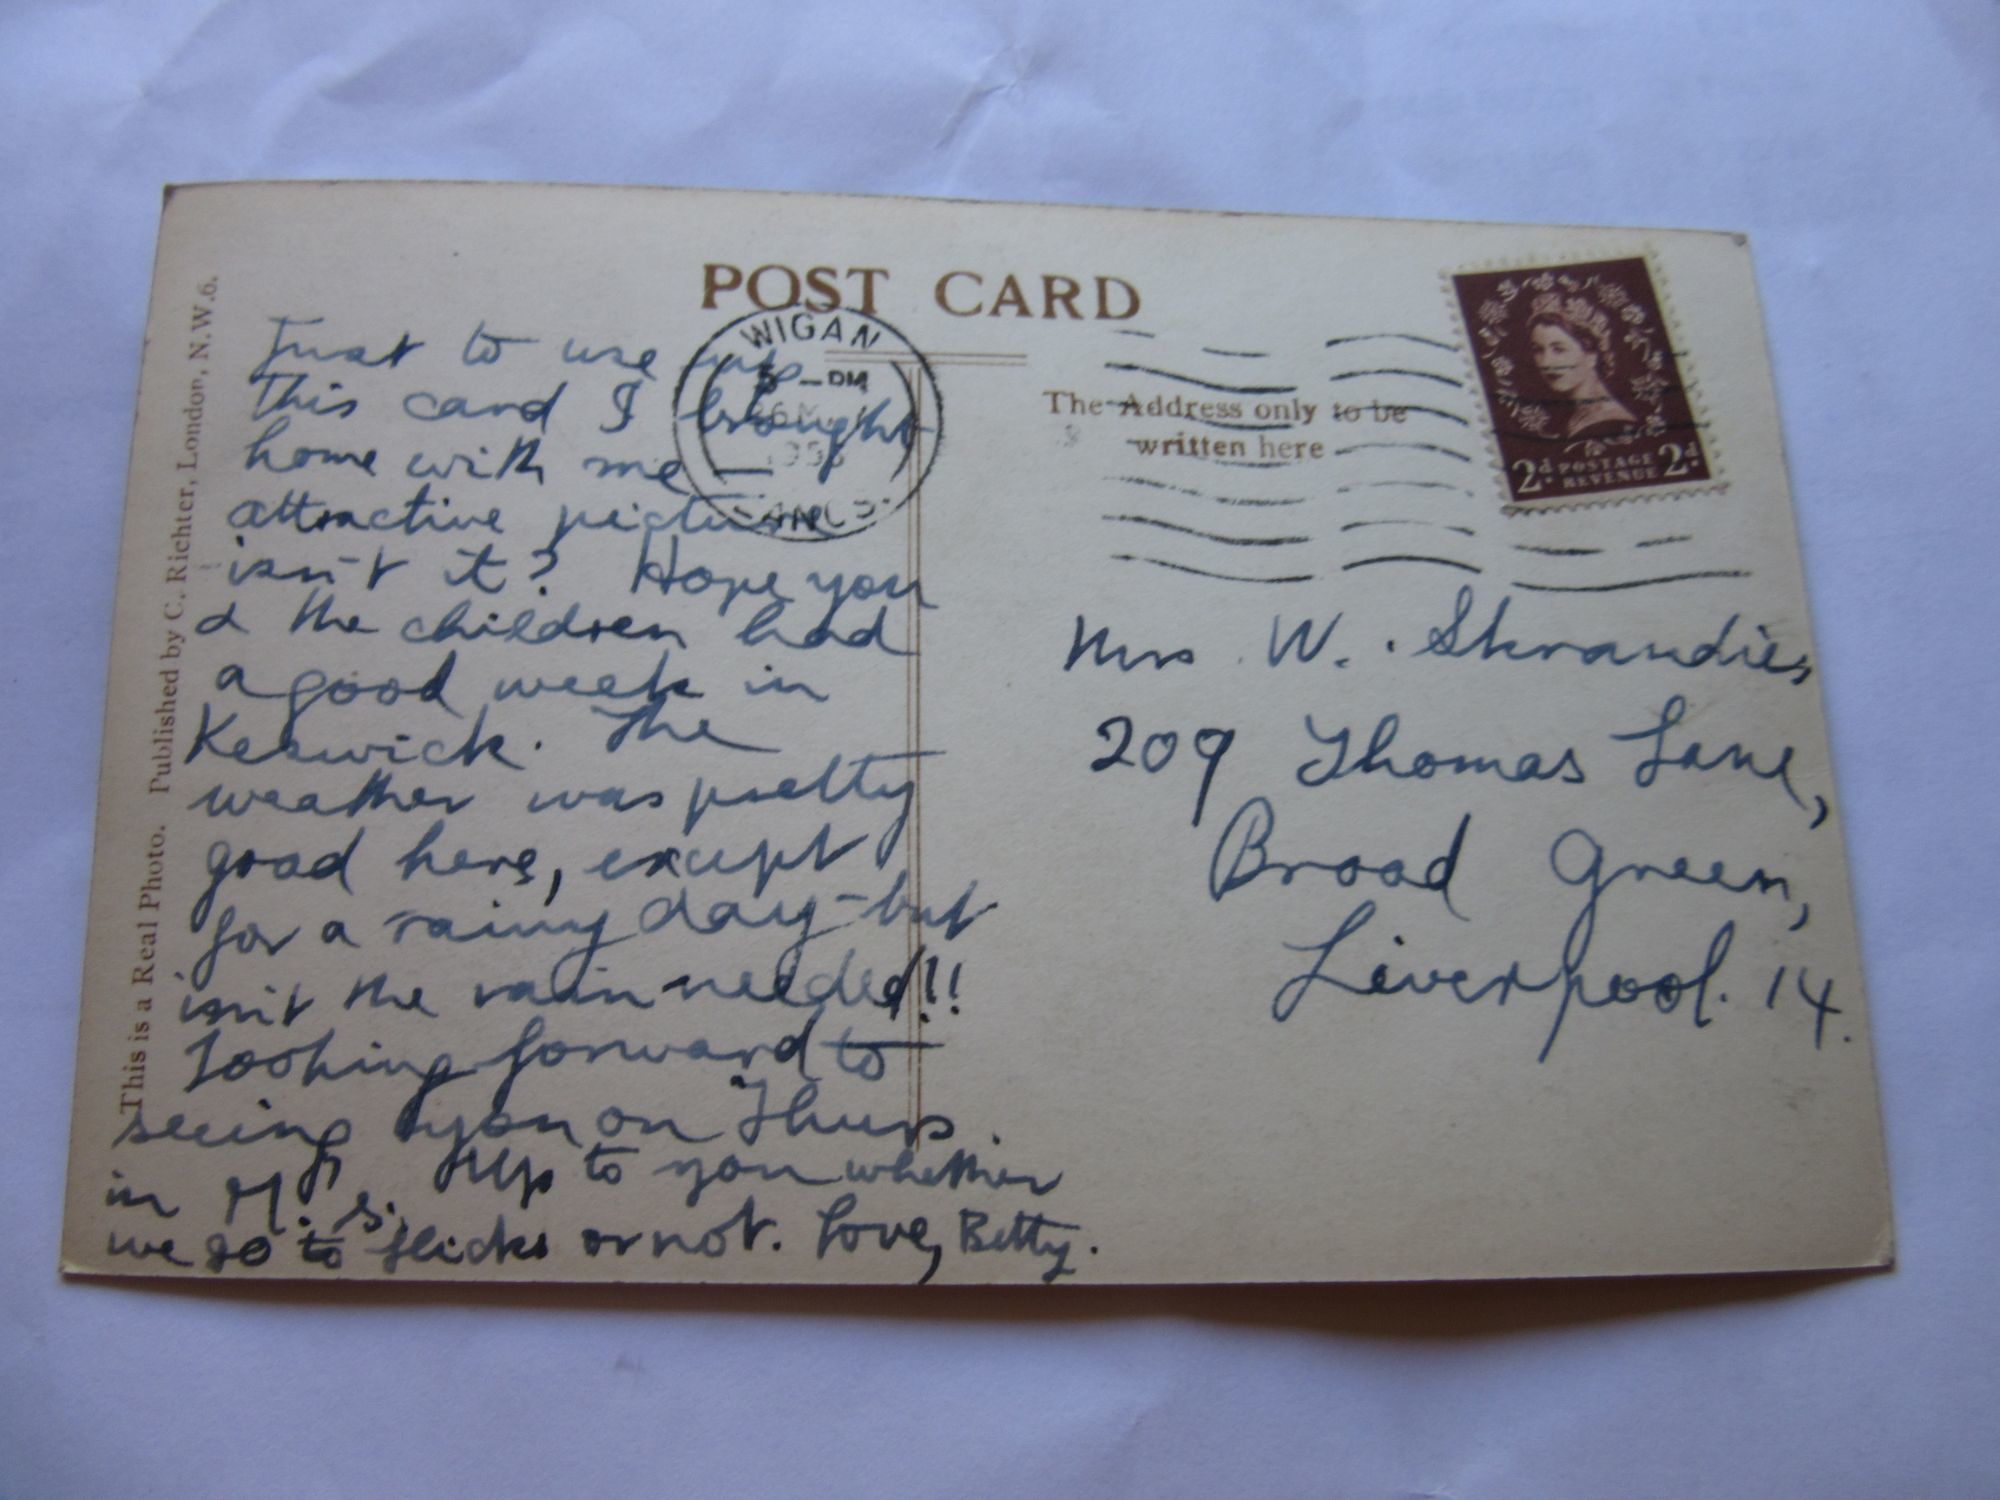 POST CARD
This is a Real Photo. Published by C. Richter, London, N.W.6.
Just to use up
this card I brought
home with me —
attractive picture
isn't it? Hope you
& the children had
a good week in
Keswick. The
weather was pretty
good here, except
for a rainy day - but
isn't the rain needed!!
Looking forward to
seeing you on Thurs.
in M. S. Up to you whether
we go to flicks or not. Love, Betty.
WIGAN
5 - PM
LANCS.
The Address only to be
written here
2d POSTAGE REVENUE 2d
Mrs. W. Skrandies,
209 Thomas Lane,
Broad Green,
Liverpool. 14.